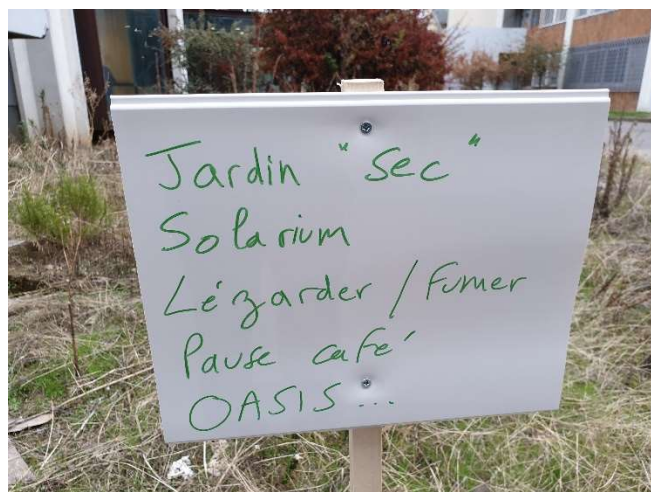 Jardin "Sec"
Solarium
Lézarder / Fumer
Pause café
OASIS...